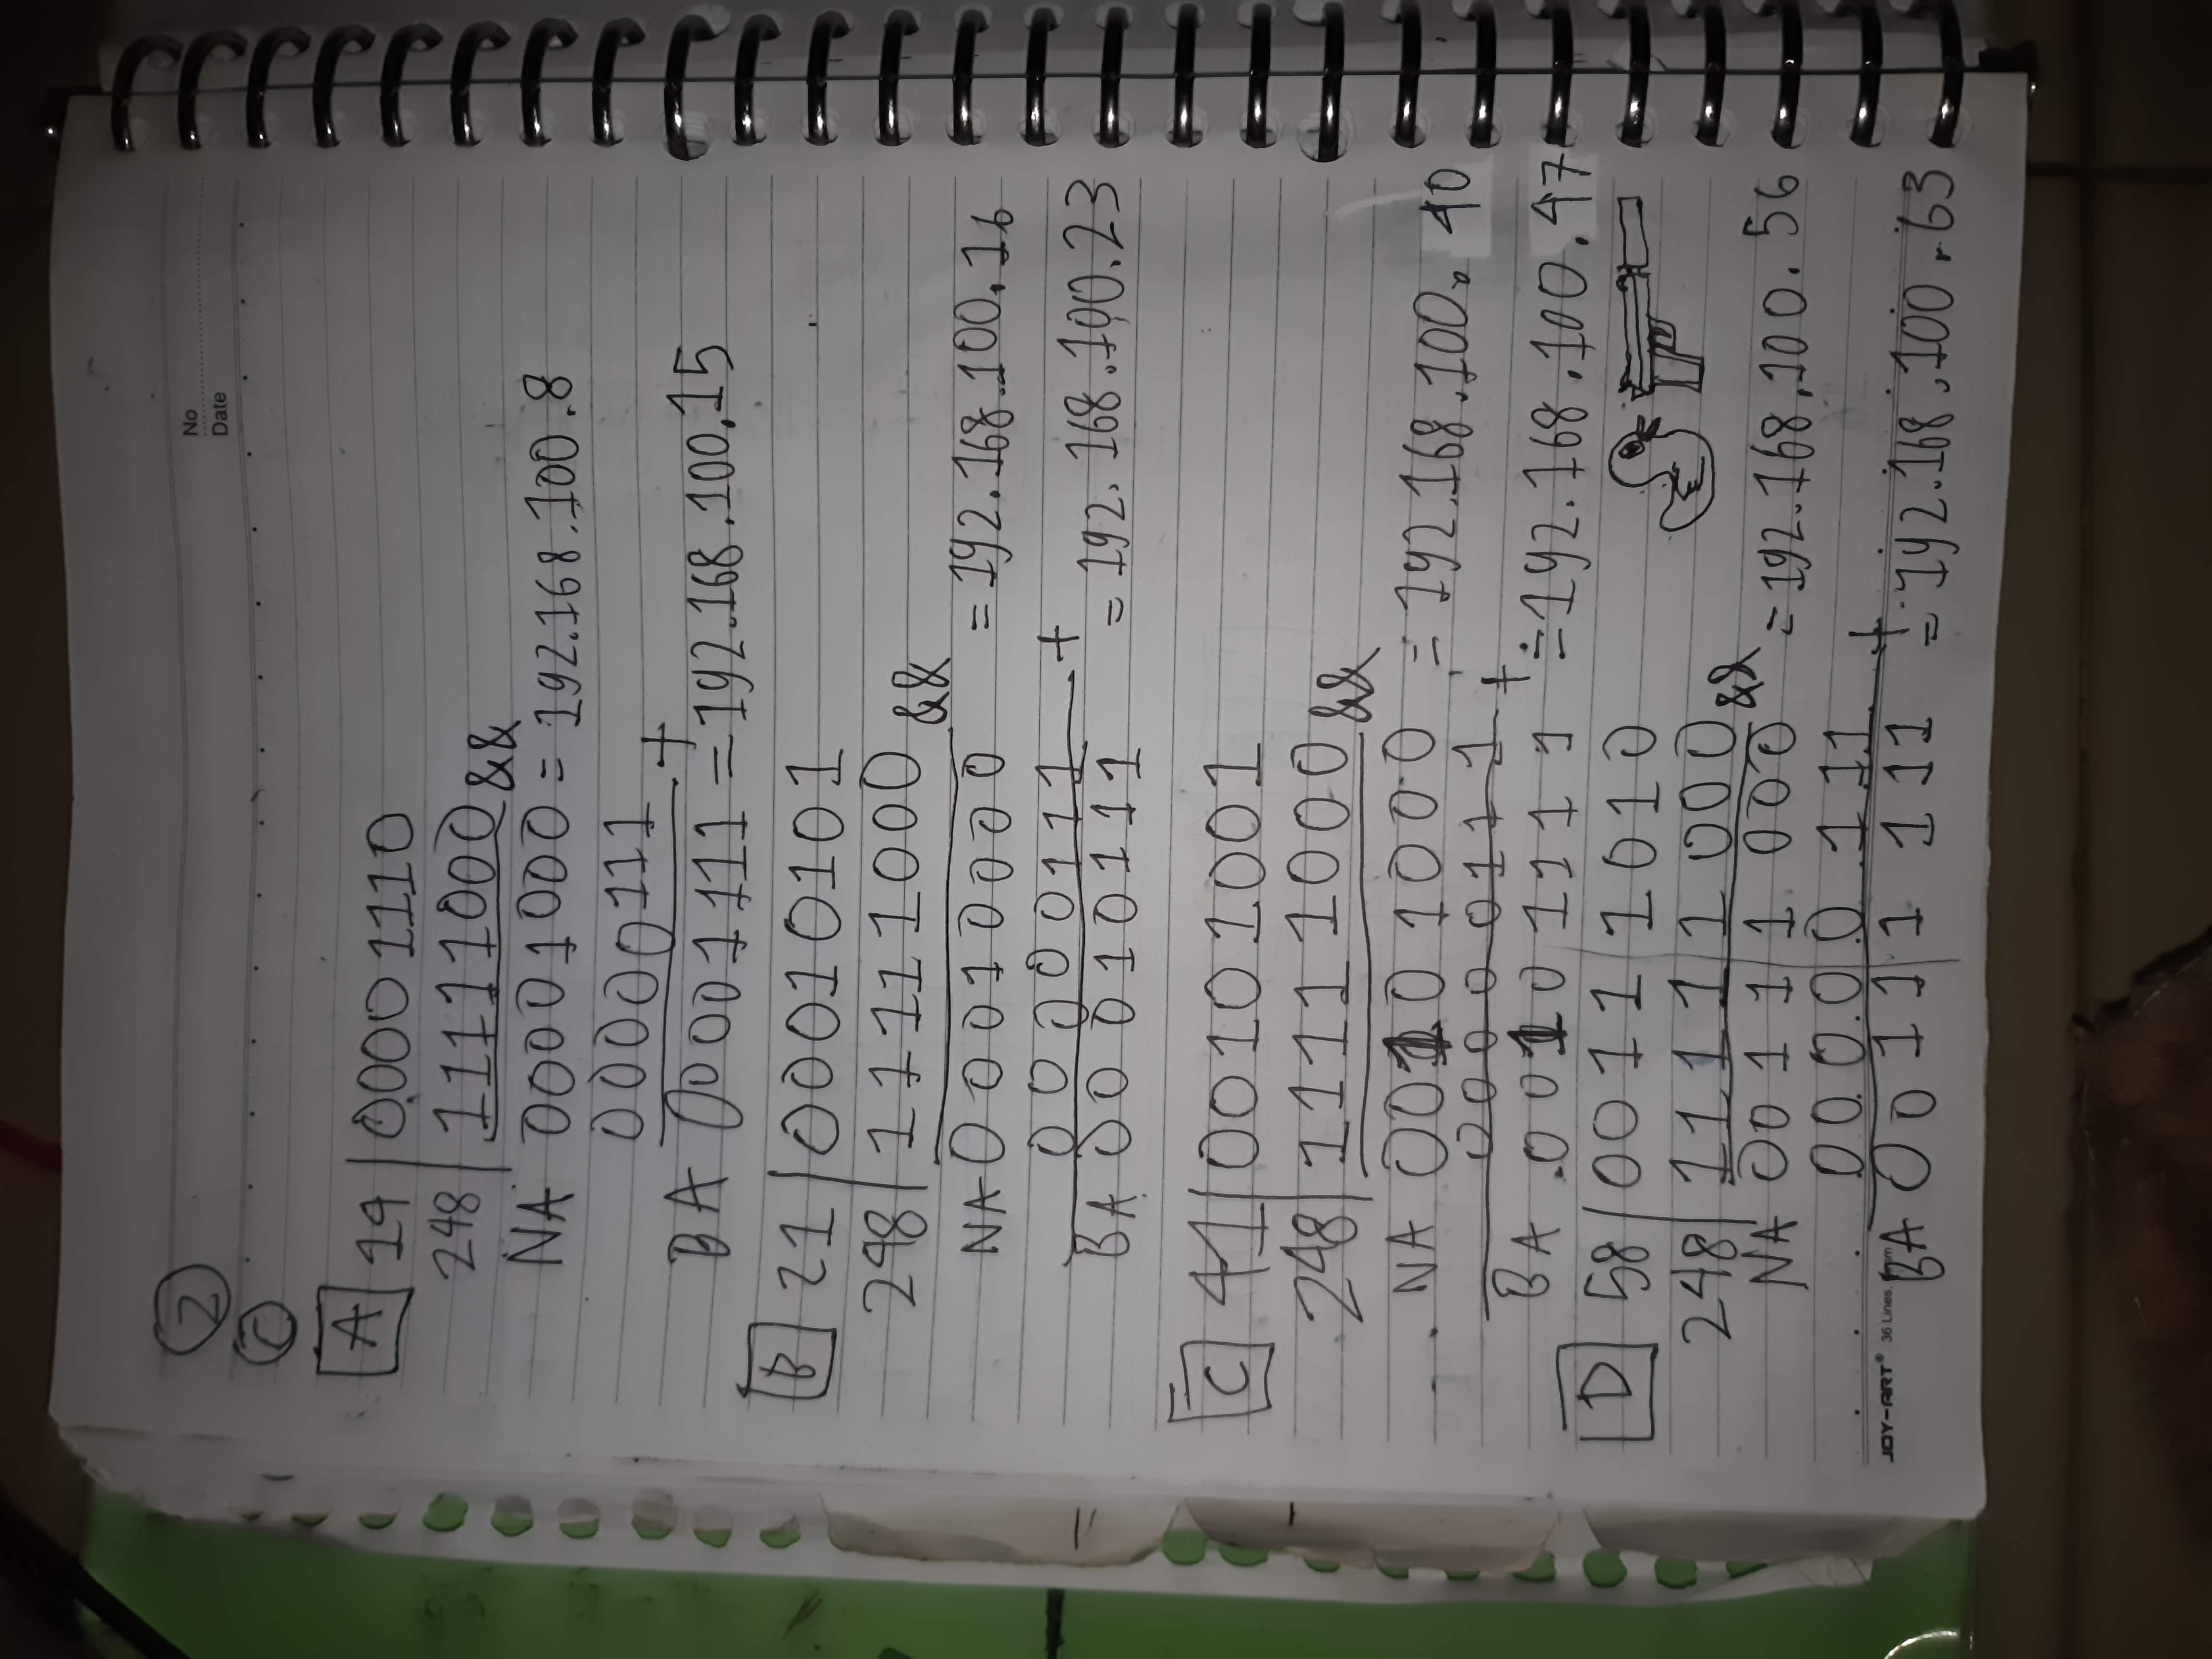 2
No
Date
C
A 14 00001110
248 11111000 &&
NA 00001000 = 192.168.100.8
00000111 +
BA 00001111 = 192.168.100.15
B 21 00010101
248 11111000 &&
NA 00010000 = 192.168.100.16
00000111 +
BA 00010111 = 192.168.100.23
C 41 00101001
248 11111000 &&
NA 00101000 = 192.168.100.40
00000111 +
BA 00101111 = 192.168.100.47
D 58 00111010
248 11111000 &&
NA 00111000 = 192.168.100.56
00000111 +
JOY-ART® 36 Lines,
BA 00111111 = 192.168.100.63